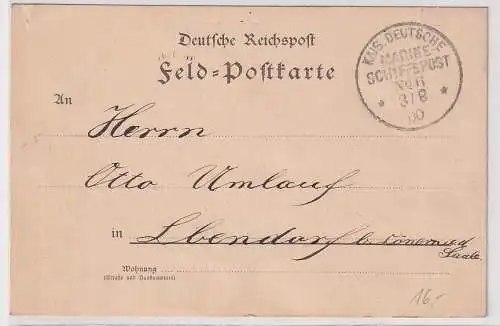 Deutsche Reichspost
Feld=Postkarte
KAIS. DEUTSCHE
MARINE-
SCHIFFSPOST
No 6
3/8
00
An
Herrn
Otto Umlauf
in Ebendorf b.
Saale
Wohnung
(Straße und Hausnummer)
16,-